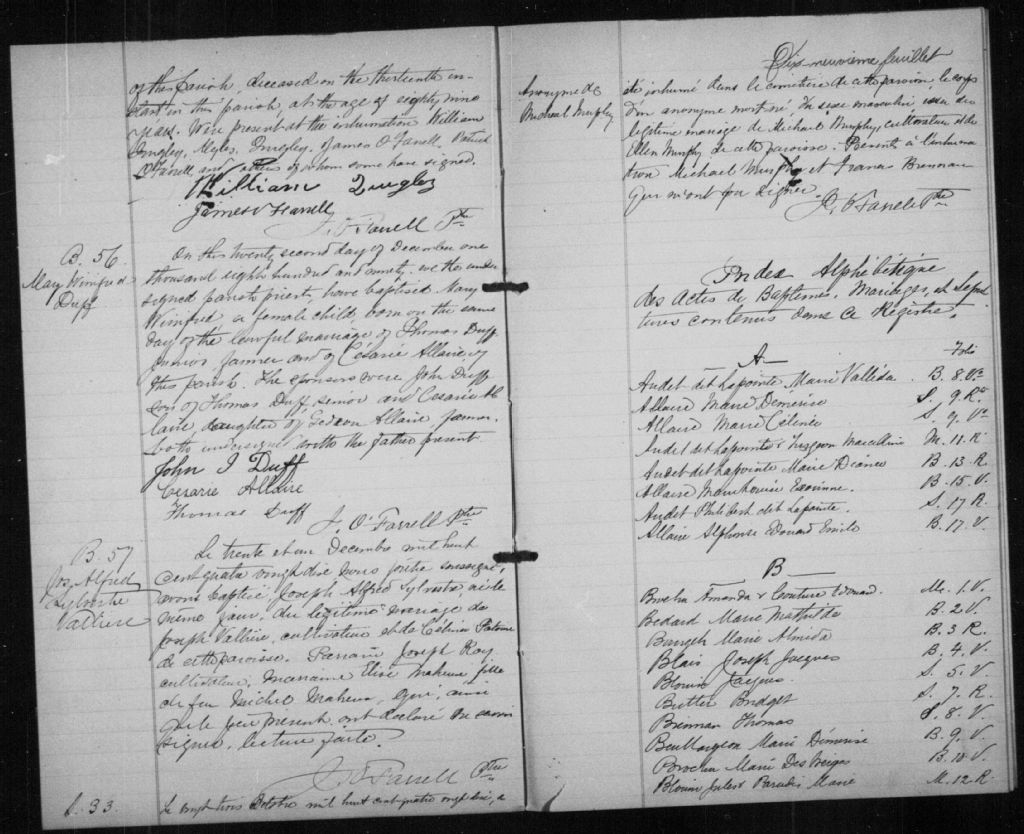 of this parish, deceased on the thirteenth in-
stant in this parish, at the age of eighty nine
years. Were present at the inhumation William
Quigley, Myles Quigley, James O'Farrell, Patrick
O'Farrell and others of whom some have signed.
William Quigley
James O'Farrell
J. O'Farrell Ptre
B. 56
May Winifred
Duff
On this twenty second day of December one
thousand eight hundred and ninety, we the under
signed parish priest, have baptised Mary
Winifred a female child, born on the same
day of the lawful marriage of Thomas Duff
junior farmer and of Césarie Allaire, of
this parish. The sponsors were John Duff
son of Thomas Duff, senior and Cesarie Al
laire, daughter of Gedeon Allaire, farmer
both undersigned with the father present.
John J Duff
Cesarie Allaire
Thomas Duff
J. O'Farrell Ptre
B. 57
Jos. Alfred
Sylvestre
Vallière
Le trente et un Decembre mil huit
cent quatre vingt dix nous prêtre soussigné,
avons baptisé, Joseph Alfred Sylvestre, né le
même jour, du légitime mariage de
Joseph Vallière, cultivateur et de Célina Patoine
de cette paroisse. Parrain Joseph Roy
cultivateur, marraine Elise Maheux fille
de feu Michel Maheux, qui, ainsi
que le père présent ont déclaré ne savoir
signer. Lecture faite.
J. O'Farrell Ptre
S. 33
Le vingt trois Octobre mil huit cent quatre vingt dix, a
Dix neuvieme feuillet
Anonyme de
Micheal Murphy
été inhumé dans le cimetière de cette paroisse, le corps
d'un anonyme mort né, du sexe masculin, issu du
légitime mariage de Michael Murphy, cultivateur et de
Ellen Murphy de cette paroisse. Présents à l'inhuma
tion Michael Murphy et Brennan
qui n'ont pu signer
J. O'Farrell Ptre
Index Alphébétique
des Actes de Baptemes, Mariages, et Sepul
tures contenus dans ce Régistre.
A
Folio
Audet dit Lapointe Marie Vallida. B. 8. Vo
Allaire Marie Demerise S. 9. Ro
Allaire Marie Célinée S. 9. Vo
Audet dit Lapointe & Marcelline M. 11. R
Audet dit Lapointe Marie Dianée B. 13. R.
Allaire Marie Louise B. 15. V.
Audet Philibert dit Lapointe. S. 17 R
Allaire Alphonse Edouard Emile B. 17. V.
B
Brochu Amanda & Couture Edouard. M. 1. V.
Bedard Marie Mathilde B. 2 V.
Marie Almeda B. 3 R.
Blais Joseph Jacques B. 4. V.
Blouin Jacques. S. 5. V.
Butler Bridget S. 7. R.
Brennan Thomas S. 8. V.
Beullargeon Marie Démerise B. 9. V.
Brochu Marie Des Neiges B. 10 V.
Blouin Jules & Paradis Marie M. 12. R.